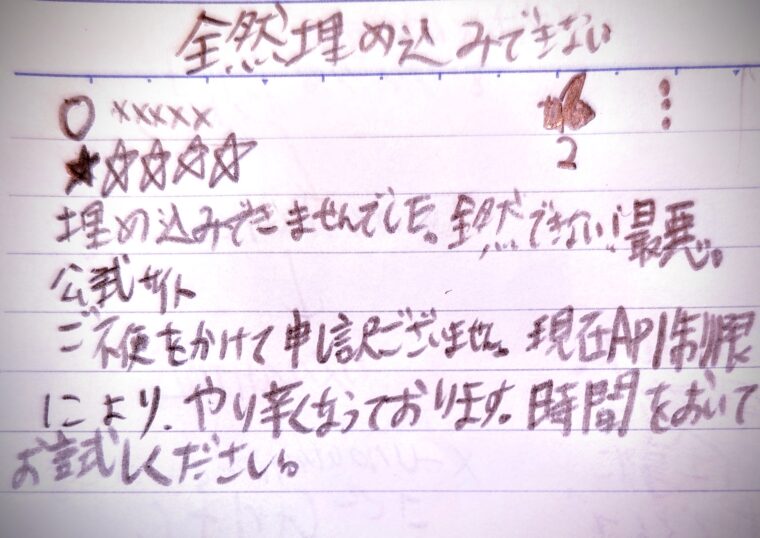 全然埋め込みできない
○ ××××× ⋮
★☆☆☆☆ 2
埋め込みできませんでした。全然できない!最悪。
公式サイト
ご不便をかけて申し訳ございません。現在API制限
により、やり辛くなっております。時間をおいて
お試しください。